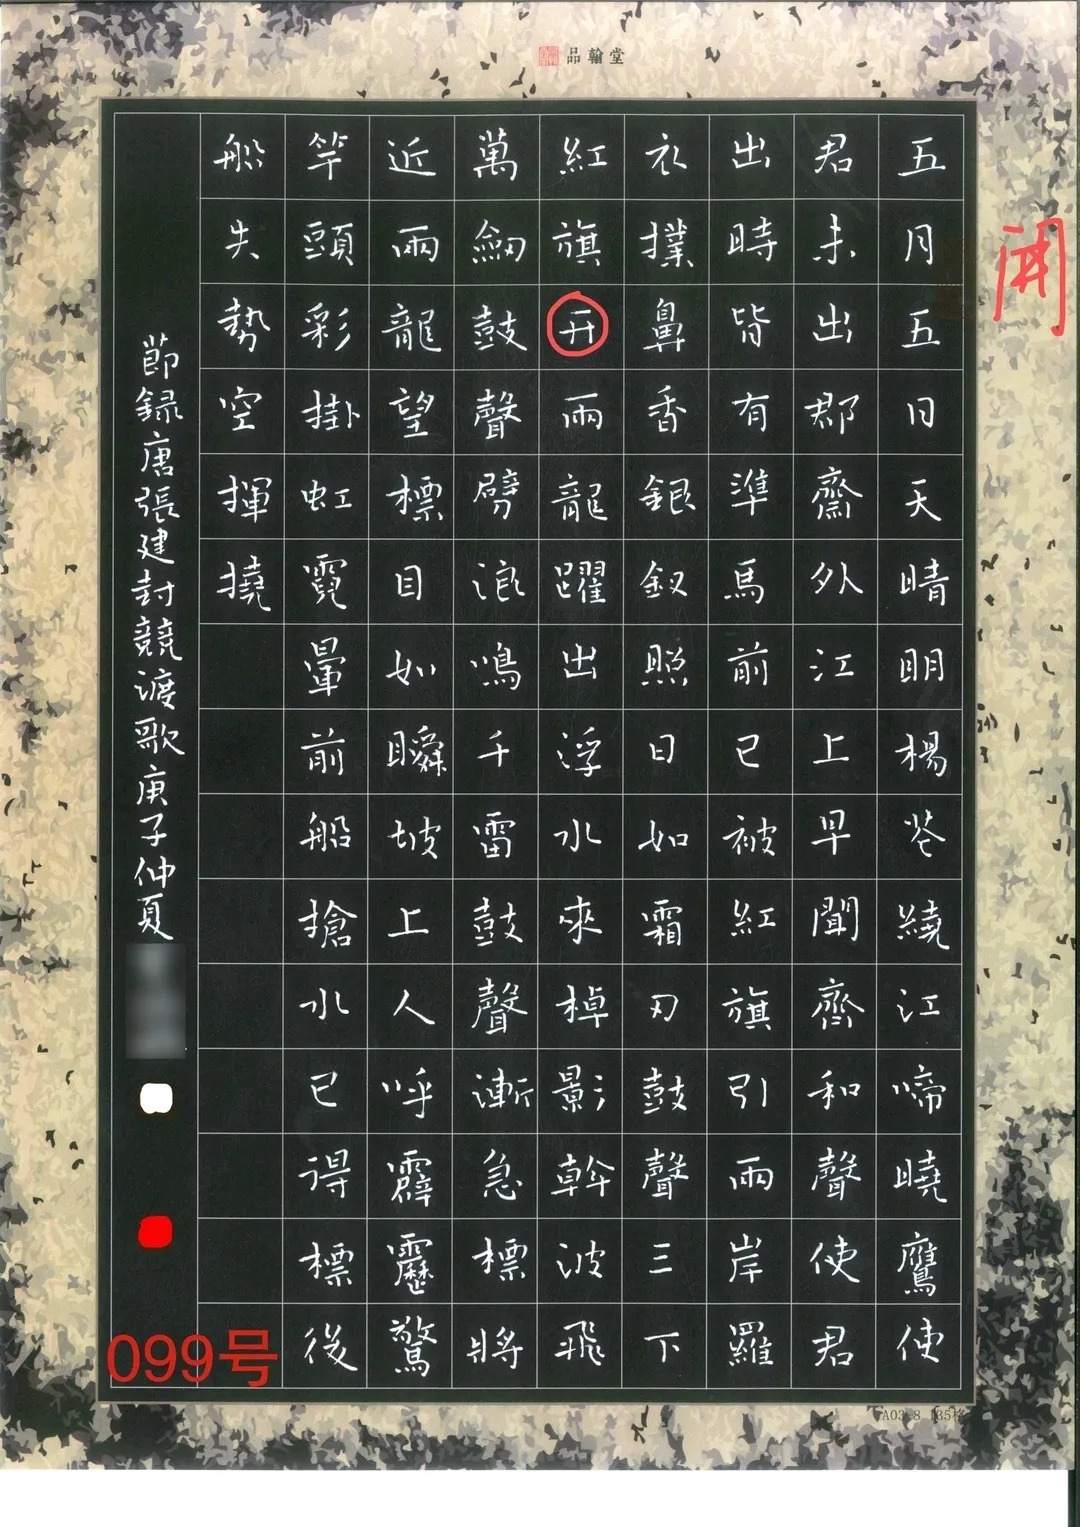 品翰堂
五月五日天晴明楊花繞江啼曉鷹使
君未出郡齋外江上早聞齊和聲使君
出時皆有準馬前已被紅旗引兩岸羅
衣撲鼻香銀釵照日如霜刃鼓聲三下
紅旗开兩龍躍出浮水來棹影幹波飛
萬劒鼓聲劈浪鳴千雷鼓聲漸急標將
近兩龍望標目如瞬坡上人呼霹靂驚
竿頭彩掛虹霓暈前船搶水已得標後
船失勢空揮撓
節録唐張建封競渡歌庚子仲夏
開
099号
A03 8 135格